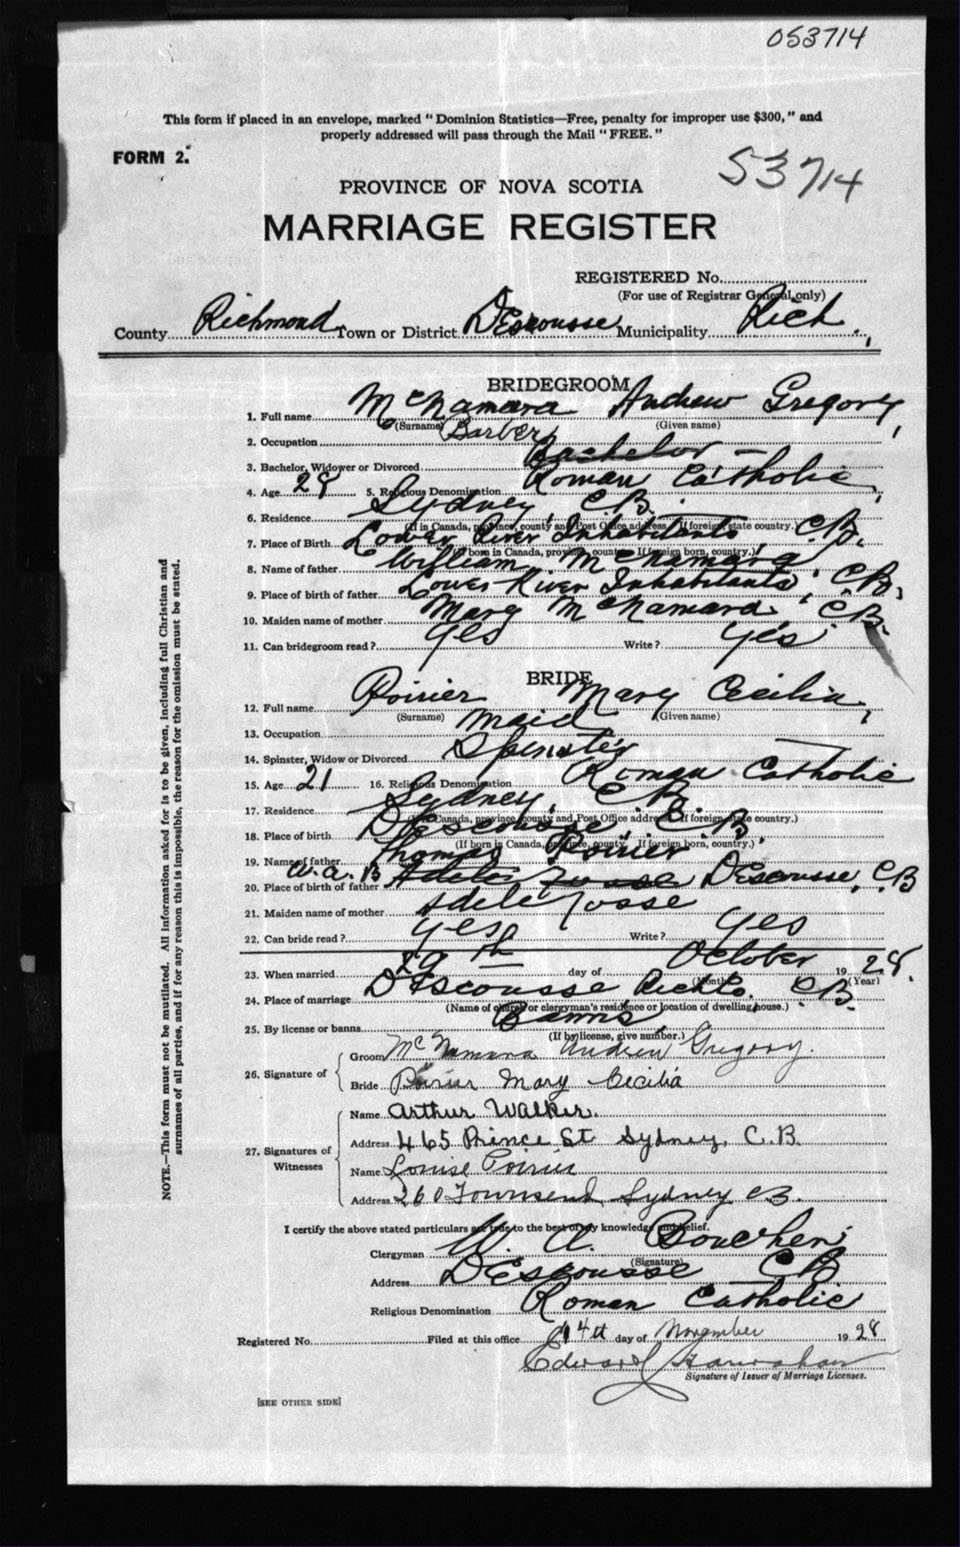 053714
This form if placed in an envelope, marked "Dominion Statistics—Free, penalty for improper use $300," and
properly addressed will pass through the Mail "FREE."
FORM 2.
53714
PROVINCE OF NOVA SCOTIA
MARRIAGE REGISTER
REGISTERED No.
(For use of Registrar General only)
County Richmond Town or District DEscousse Municipality Rich.
BRIDEGROOM
1. Full name McNamara Andrew Gregory
(Surname) (Given name)
2. Occupation Barber
3. Bachelor, Widower or Divorced Bachelor
4. Age 28 5. Religious Denomination Roman Catholic
6. Residence Sydney, C.B.
(If in Canada, province, county and Post Office address. If foreign, state country.)
7. Place of Birth Lower River Inhabitants, C.B.
(If born in Canada, province, county. If foreign born, country.)
8. Name of father William McNamara
9. Place of birth of father Lower River Inhabitants, C.B.
10. Maiden name of mother Mary McNamara C.B.
11. Can bridegroom read? Yes Write? Yes
BRIDE
12. Full name Poirier Mary Cecilia
(Surname) (Given name)
13. Occupation Maid
14. Spinster, Widow or Divorced Spinster
15. Age 21 16. Religious Denomination Roman Catholic
17. Residence Sydney, CB
(If in Canada, province, county and Post Office address. If foreign, state country.)
18. Place of birth DEscousse, C.B.
(If born in Canada, province, county. If foreign born, country.)
19. Name of father Thomas Poirier
W.A.B
20. Place of birth of father DEscousse, C.B
21. Maiden name of mother Adele Josse
22. Can bride read? Yes Write? Yes
23. When married 29th day of October 1928.
(Month) (Year)
24. Place of marriage DEscousse C.B.
(Name of church or clergyman's residence or location of dwelling house.)
25. By license or banns Banns
(If by license, give number.)
26. Signature of
Groom McNamara Andrew Gregory.
Bride Poirier Mary Cecilia
27. Signatures of Witnesses
Name Arthur Walker.
Address 465 Prince St. Sydney, C.B.
Name Louise Poirier
Address 260 Townsend, Sydney CB.
I certify the above stated particulars are true to the best of my knowledge and belief.
Clergyman W. A.
(Signature)
Address DEscousse CB
Religious Denomination Roman Catholic
Registered No. Filed at this office 14th day of November 1928
Edward
Signature of Issuer of Marriage Licenses.
[SEE OTHER SIDE]
NOTE.—This form must not be mutilated. All information asked for is to be given, including full Christian and
surnames of all parties, and if for any reason this is impossible, the reason for the omission must be stated.